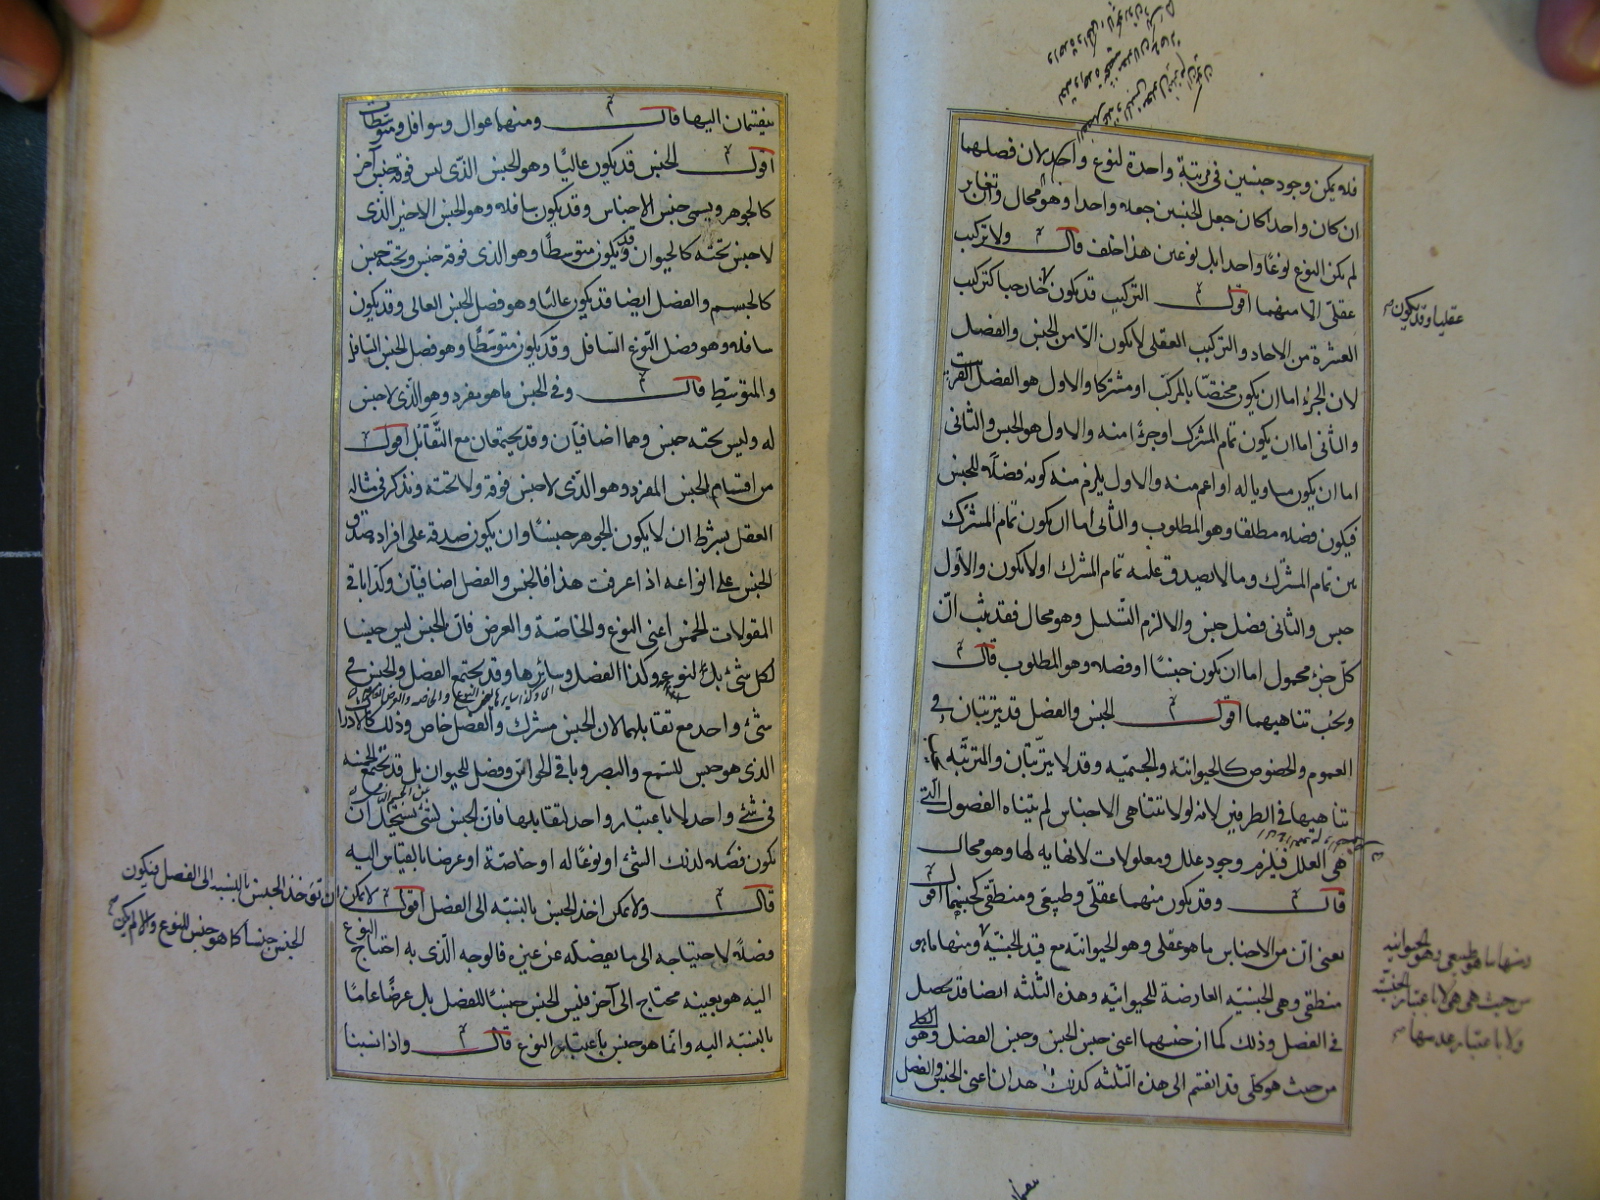 فله يمكن وجود جنسين فى مرتبة واحدة لنوع واحد لان فصلهما
ان كان واحدا كان جعل الجنسين جعله واحدا وهو محال وان تغاير
لم يكن النوع نوعا واحدا بل نوعين هذا خلف قال ولا تركيب
عقلى الا منهما اقول التركيب قد يكون خارجيا كتركيب
العشرة من الاحاد والتركيب العقلى لا يكون الا من الجنس والفصل
لان الجزء اما ان يكون مختصا بالمركب او مشتركا والاول هو الفصل القريب
والثانى اما ان يكون تمام المشترك او جزءا منه والاول هو الجنس والثانى
اما ان يكون مساويا له او اعم منه والاول يلزم منه كونه فصلا للجنس
فيكون فصله مطلقا وهو المطلوب والثانى اما ان يكون تمام المشترك
بين تمام المشترك وما لا يصدق عليه تمام المشترك او لا يكون والاول
جنس والثانى فصل جنس والا لزم التسلسل وهو محال فقد ثبت ان
كل جزء محمول اما ان يكون جنسا او فصله وهو المطلوب قال
ويجب تناهيهما اقول الجنس والفصل قد يترتبان فى
العموم والخصوص كالحيوانيه والجسميه وقد لا يترتبان والمترتبه يجب
تناهيها فى الطرفين لانه لولا تتناهى الاجناس لم يتناه الفصول التى
هى العلل فيلزم وجود علل ومعلولات لا نهايه لها وهو محال
قال وقد يكون منهما عقلى وطبيعى ومنطقى كجنسهما اقول
يعنى ان من الاجناس ما هو عقلى وهو الحيوانيه مع قيد الجنسيه ومنها ما هو
منطقى وهى الجنسيه العارضة للحيوانيه وهذه الثلثه ايضا قد تحصل
فى الفصل وذلك كما ان جنسهما اعنى جنس الجنس وجنس الفصل وهو الكلى
من حيث هو كلى قد انقسم الى هذه الثلثه كذلك هذان اعنى الجنس والفصل
عقليا وقد يكون
ومنها ما هو طبيعى وهو الحيوانيه
من حيث هى هى لا باعتبار الجنسيه
ولا باعتبار عدمها
ينقسمان اليها قال ومنهما عوال وسوافل ومتوسطات
اقول الجنس قد يكون عاليا وهو الجنس الذى ليس فوقه جنس آخر
كالجوهر ويسمى جنس الاجناس وقد يكون سافله وهو الجنس الاخير الذى
لا جنس تحته كالحيوان وقد يكون متوسطا وهو الذى فوقه جنس وتحته جنس
كالجسم والفصل ايضا قد يكون عاليا وهو فصل الجنس العالى وقد يكون
سافله وهو فصل النوع السافل وقد يكون متوسطا وهو فصل الجنس السافل
والمتوسط قال وفى الجنس ما هو مفرد وهو الذى لا جنس
له وليس تحته جنس وهما اضافيان وقد يجتمعان مع التقابل اقول
من اقسام الجنس المفرد وهو الذى لا جنس فوقه ولا تحته ونذكر فى مثاله
العقل بشرط ان لا يكون الجوهر جنسا وان يكون صدقه على افراده صدق
الجنس على انواعه اذا عرفت هذا فالجنس والفصل اضافيان وكذا باقى
المقولات الخمس اعنى النوع والخاصة والعرض فان الجنس ليس جنسا
لكل شئ بل لنوعه وكذا الفصل وسائرها وقد يجتمع الفصل والجنس فى
شئ واحد مع تقابلهما لان الجنس مشترك والفصل خاص وذلك كالادراك
الذى هو جنس للسمع والبصر وباقى الحواس وفصل للحيوان بل قد تجتمع الخمسه
فى شئ واحد لا باعتبار واحد لتقابلها فان الجنس لشئ يستحيل ان
يكون فصله لذلك الشئ او نوعا له او خاصة او عرضا بالقياس اليه
قال ولا يمكن اخذ الجنس بالنسبه الى الفصل اقول لا يمكن ان تؤخذ الجنس بالنسبه الى الفصل فيكون
الجنس جنسا كما هو جنس للنوع والا لم يكن
فصلا لاحتياجه الى ما يفصله عن غيره فالوجه الذى به احتاج النوع
اليه هو بعينه محتاج الى آخر فليس الجنس جنسا للفصل بل عرضا عاما
بالنسبه اليه وانما هو جنس باعتبار النوع قال واذا نسبنا